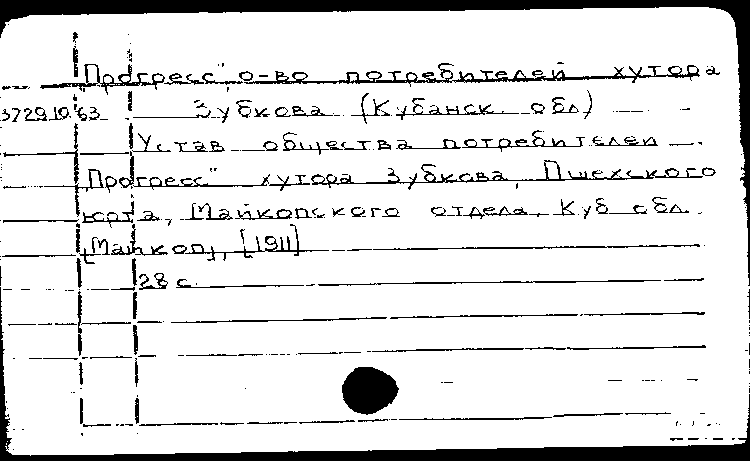 „Прогресс", о-во потребителей хутора
37291063 Зубкова (Кубанск. обл)
Устав общества потребителей
„Прогресс" хутора Зубкова, Пшехского
юрта, Майкопского отдела, Куб обл.
[Майкоп], [1911]
28 с.